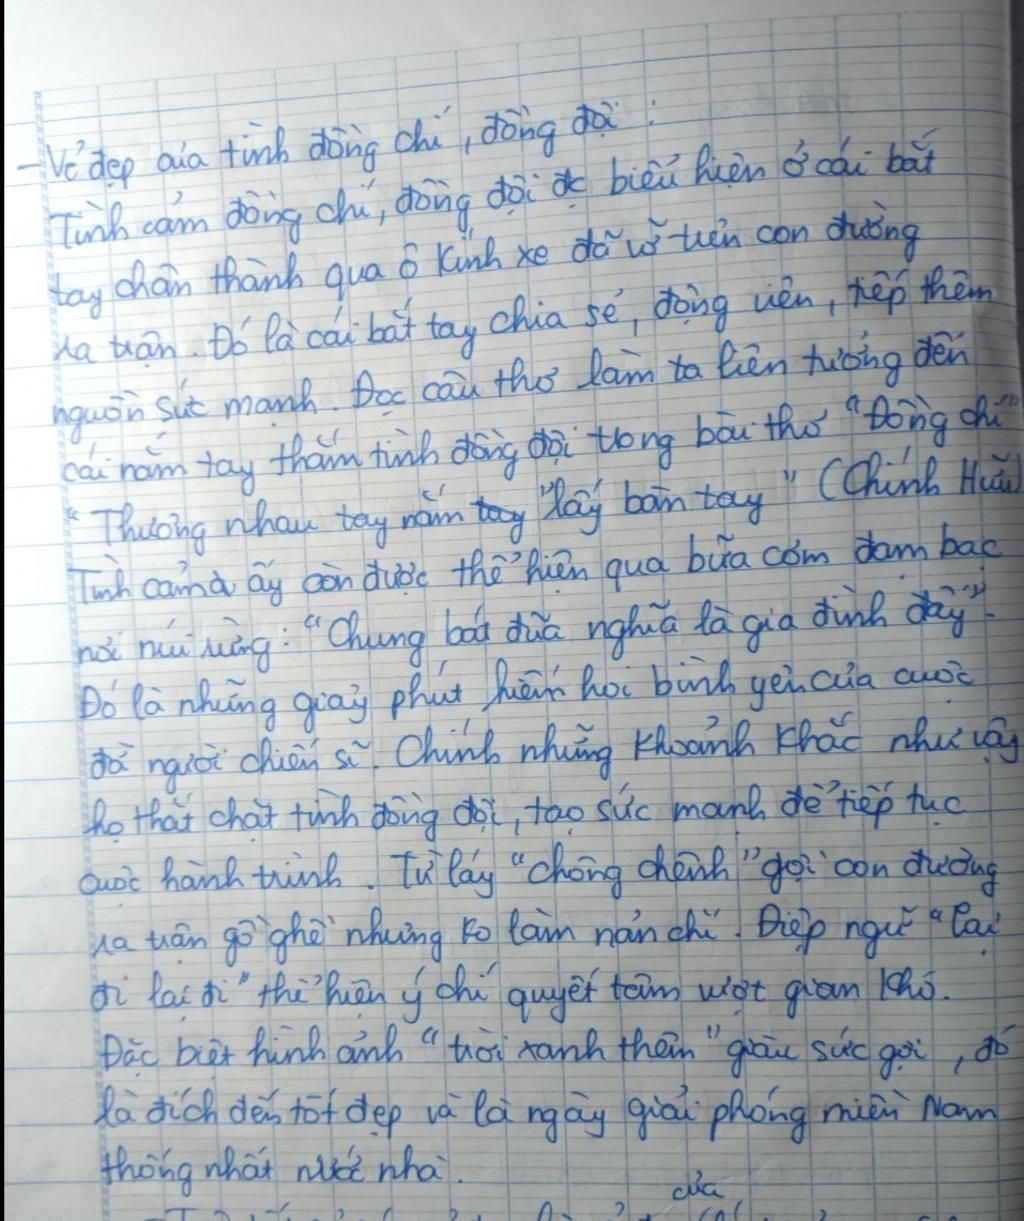 - Vẻ đẹp của tình đồng chí, đồng đội :
Tình cảm đồng chí, đồng đội đc biểu hiện ở cái bắt
tay chân thành qua ô kính xe đã vỡ trên con đường
ra trận. Đó là cái bắt tay chia sẻ, động viên, tiếp thêm
nguồn sức mạnh. Đọc câu thơ làm ta liên tưởng đến
cái nắm tay thắm tình đồng đội trong bài thơ "Đồng chí"
"Thương nhau tay nắm lấy bàn tay" (Chính Hữu)
Tình cảm ấy còn được thể hiện qua bữa cơm đạm bạc
nơi núi rừng: "Chung bát đũa nghĩa là gia đình đấy".
Đó là những giây phút hiếm hoi bình yên của cuộc
đời người chiến sĩ. Chính những khoảnh khắc như vậy
họ thắt chặt tình đồng đội, tạo sức mạnh để tiếp tục
cuộc hành trình. Từ láy "chông chênh" gợi con đường
ra trận gồ ghề nhưng ko làm nản chí. Điệp ngữ "lại
đi lại đi" thể hiện ý chí quyết tâm vượt gian khó.
Đặc biệt hình ảnh "trời xanh thêm" giàu sức gợi, đó
là đích đến tốt đẹp và là ngày giải phóng miền Nam
thống nhất nước nhà.
của